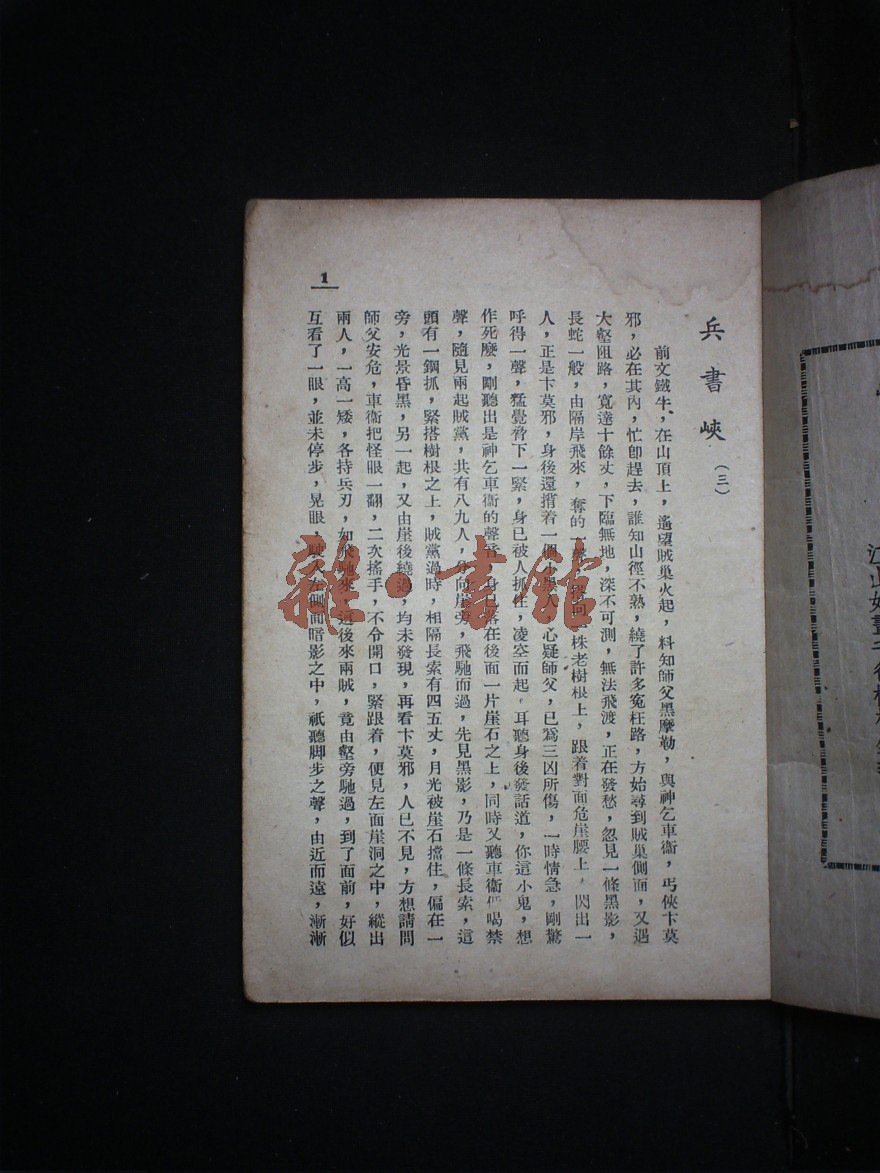 兵書峽（三）
前文鐵牛，在山頂上，遙望賊巢火起，料知師父黑摩勒，與神乞車衞，丐俠卞莫
邪，必在其內，忙卽趕去，誰知山徑不熟，繞了許多冤枉路，方始尋到賊巢側面，又遇
大壑阻路，寬達十餘丈，下臨無地，深不可測，無法飛渡，正在發愁，忽見一條黑影，
長蛇一般，由隔岸飛來，奪的一聲，搭向一株老樹根上，跟着對面危崖腰上，閃出一
人，正是卞莫邪，身後還揹着一個小黑人，心疑師父，已爲三凶所傷，一時情急，剛驚
呼得一聲，猛覺脅下一緊，身已被人抓住，凌空而起，耳聽身後發話道，你這小鬼，想
作死麼，剛聽出是神乞車衞的聲音，身已落在後面一片崖石之上，同時又聽車衞低喝禁
聲，隨見兩起賊黨，共有八九人，向崖旁，飛馳而過，先見黑影，乃是一條長索，這
頭有一鋼抓，緊搭樹根之上，賊黨過時，相隔長索有四五丈，月光被崖石擋住，偏在一
旁，光景昏黑，另一起，又由崖後繞過，均未發現，再看卞莫邪，人已不見，方想請問
師父安危，車衞把怪眼一翻，二次搖手，不令開口，緊跟着，便見左面崖洞之中，縱出
兩人，一高一矮，各持兵刃，如飛馳來，這後來兩賊，竟由壑旁馳過，到了面前，好似
互看了一眼，並未停步，晃眼，駛入左側面暗影之中，祇聽脚步之聲，由近而遠，漸漸
1
雜·書館